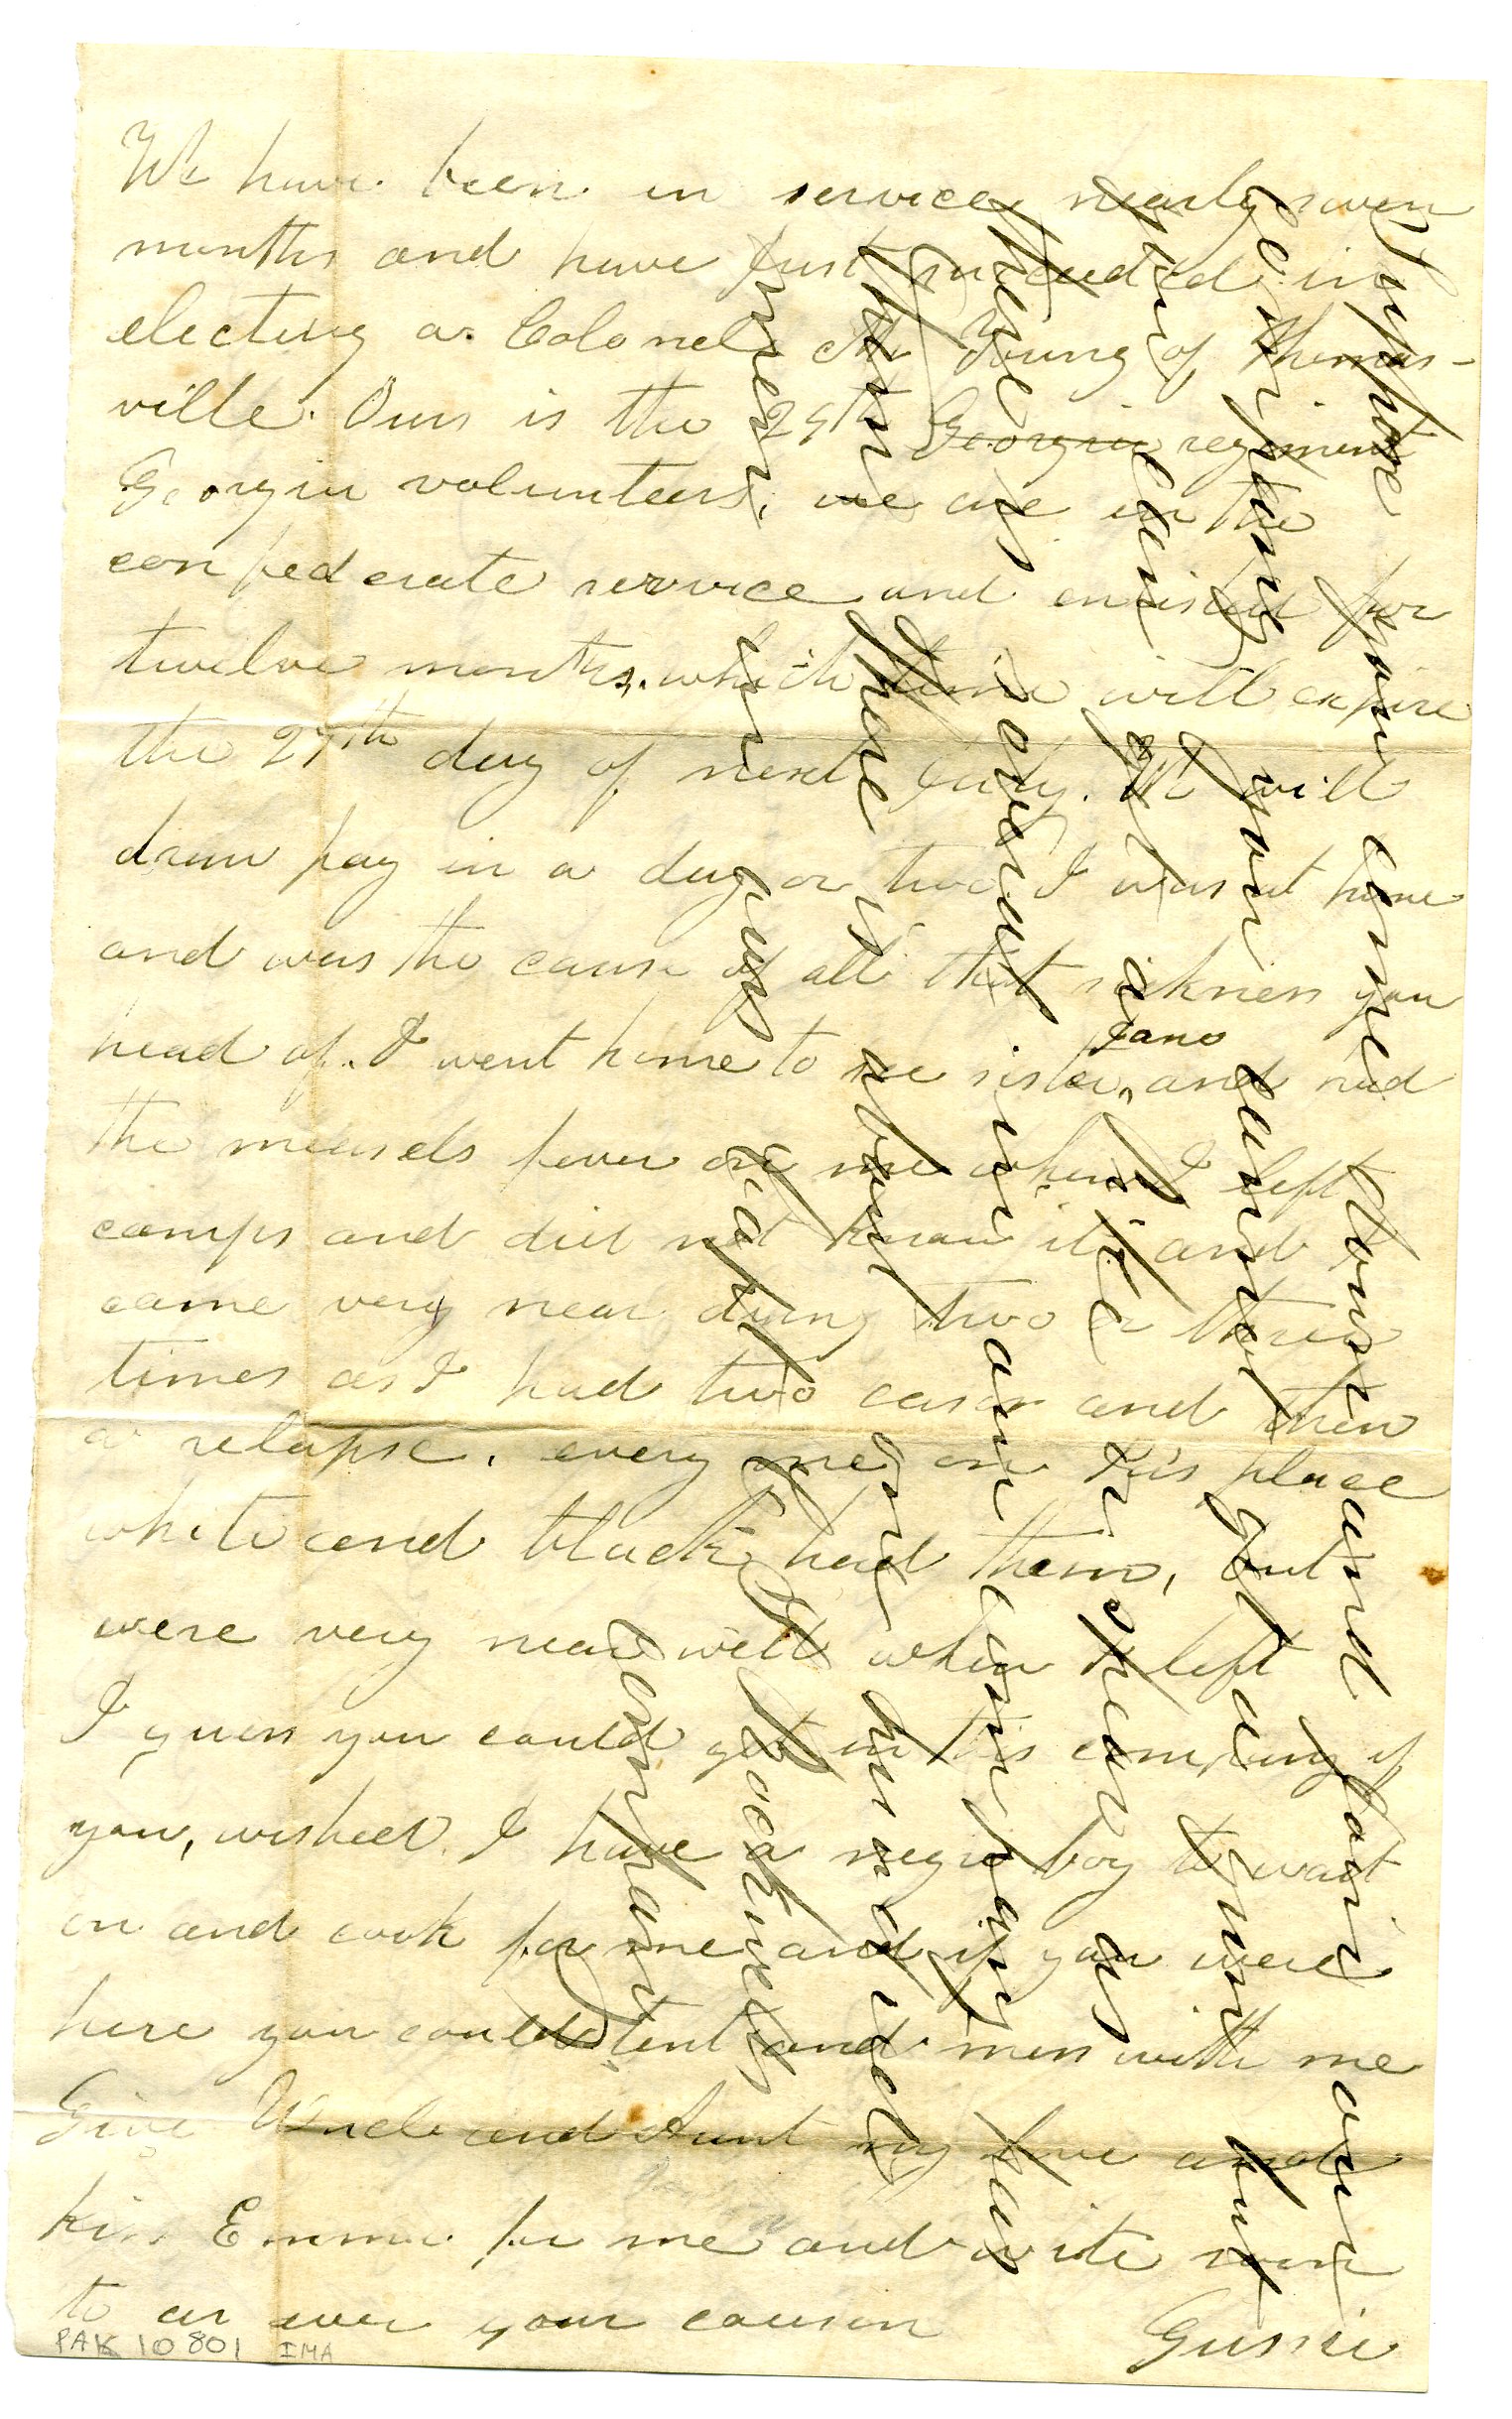 We have been in service nearly seven
months and have just succeeded in
electing a Colonel, Mr Young of Thomas-
ville. Ours is the 29th Georgia regiment
Georgia volunteers, we are in the
confederate service and enlisted for
twelve months. which time will expire
the 27th day of next July. We will
draw pay in a day or two I was at home
and was the cause of all that sickness you
head of. I went home to see sister Jane and had
the measels fever on me when I left
camps and did not know it and
came very near dying two or three
times as I had two cases and then
a relapse. every one on this place
white and black had them, but
were very near well when I left
I guess you could get in this company if
you, wished. I have a negro boy to wait
on and cook for me and if you were
here you could tent and mess with me
Give Uncle and Aunt my love and
kiss Emma for me and write soon
to as ever your cousin
Gussie
Suppose you come down and join our
company you cannot get a gun but
you can get a pike or spear as
there is several in our company has
them there is about one hundred
men in our Capt Rockwells
company
PAK 10801 IMA